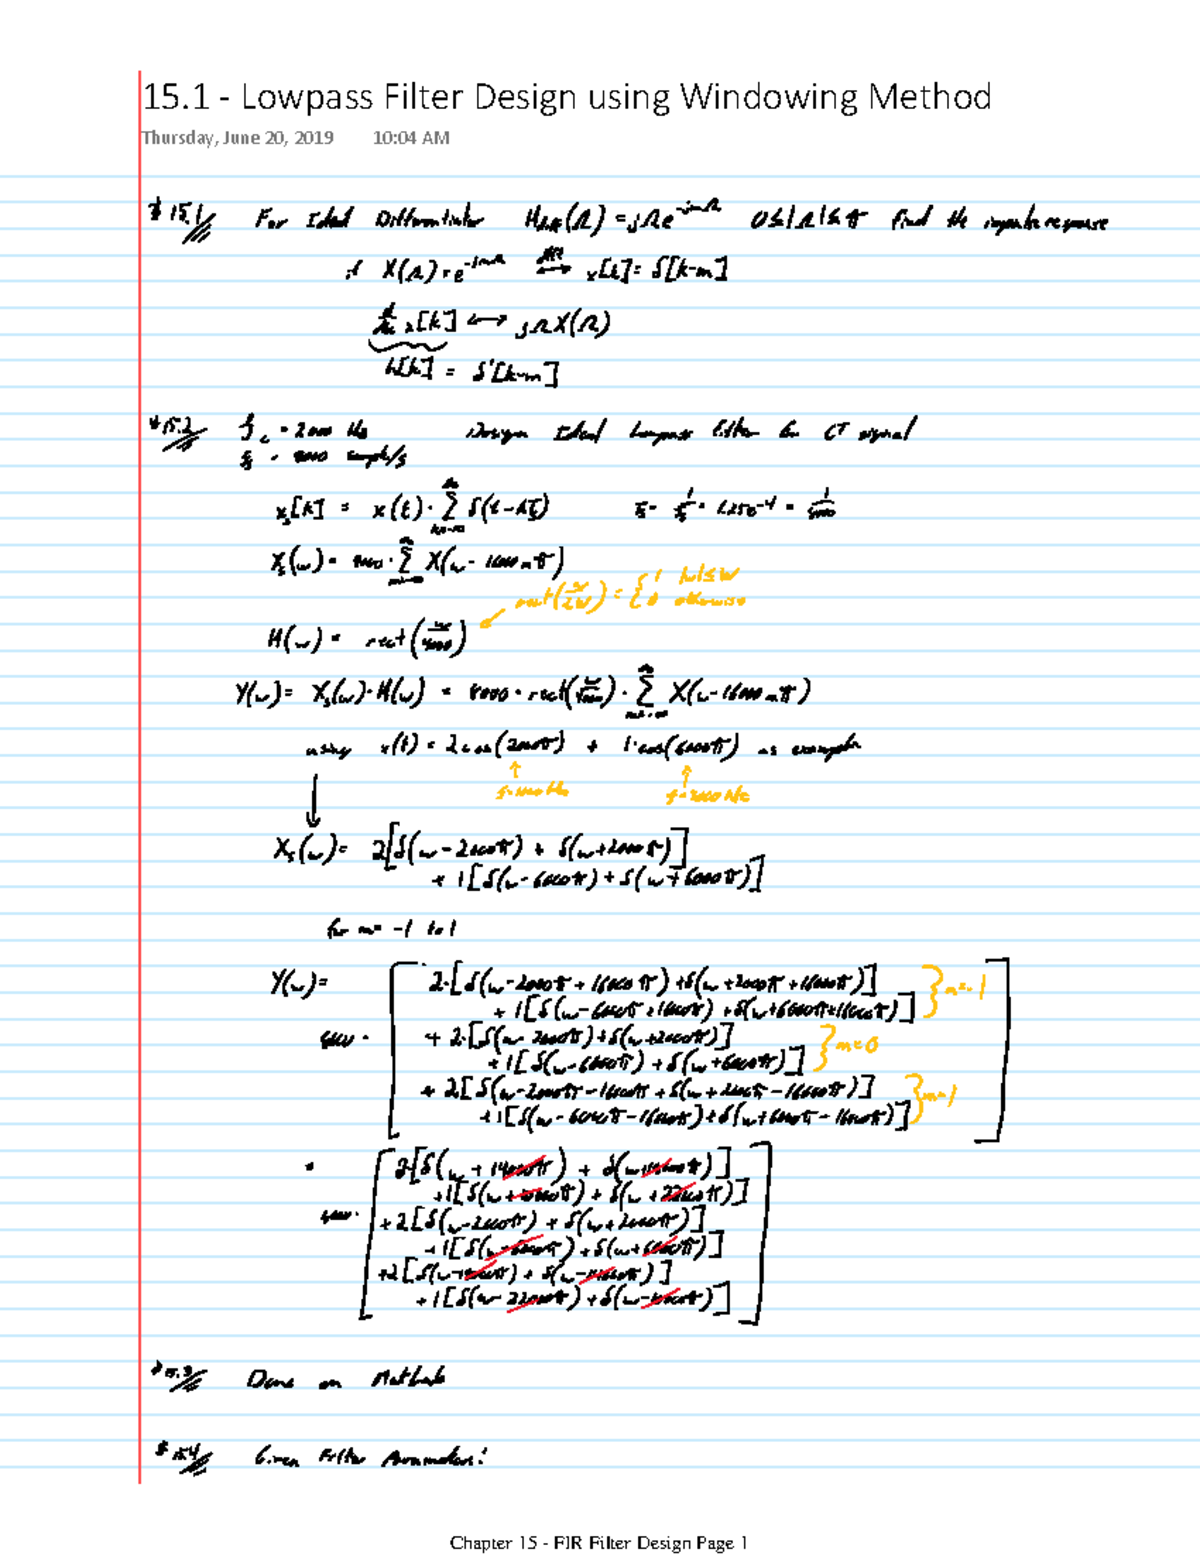 15.1 - Lowpass Filter Design using Windowing Method
Thursday, June 20, 2019 10:04 AM
15.1 For Ideal Differentiator H_diff(Ω) = jΩe^{-jmΩ} 0≤|Ω|≤π find the impulse response
if X(Ω) = e^{-jmΩ} ⟷ x[k] = δ[k-m]
x[k] ⟷ jΩX(Ω)
h[k] = δ'[k-m]
15.2 f_c = 2000 Hz Design Ideal Lowpass filter for CT signal
f_s = 8000 sample/s
x_s[k] = x(t)·∑_{k=-∞}^{∞} δ(t-kT_s) T_s = 1/f_s = 1.25e-4 = 1/8000
X_s(ω) = 8000·∑_{m=-∞}^{∞} X(ω-16000mπ)
rect(ω/2W) = { 1 |ω|≤W
0 otherwise
H(ω) = rect(ω/4000)
Y(ω) = X_s(ω)·H(ω) = 8000·rect(ω/4000)·∑_{m=-∞}^{∞} X(ω-16000mπ)
using x(t) = 2cos(2000π) + 1·cos(6000π) as example
f=1000 Hz f=3000 Hz
X_s(ω) = 2[δ(ω-2000π) + δ(ω+2000π)]
+ 1[δ(ω-6000π) + δ(ω+6000π)]
for m= -1 to 1
Y(ω) = 2·[δ(ω-2000π+16000π) + δ(ω+2000π+16000π)]
+ 1[δ(ω-6000π+16000π) + δ(ω+6000π+16000π)] } m=-1
8000· + 2·[δ(ω-2000π) + δ(ω+2000π)]
+ 1[δ(ω-6000π) + δ(ω+6000π)] } m=0
+ 2[δ(ω-2000π-16000π + δ(ω+2000π-16000π)]
+ 1[δ(ω-6000π-16000π) + δ(ω+6000π-16000π)] } m=1
= 2[δ(ω+14000π) + δ(ω+18000π)]
+1[δ(ω+10000π) + δ(ω+22000π)]
8000· +2[δ(ω-2000π) + δ(ω+2000π)]
+1[δ(ω-6000π) + δ(ω+6000π)]
+2[δ(ω-18000π) + δ(ω-14000π)]
+1[δ(ω-22000π) + δ(ω-10000π)]
15.3 Done on Matlab
15.4 Given Filter Parameters:
Chapter 15 - FIR Filter Design Page 1